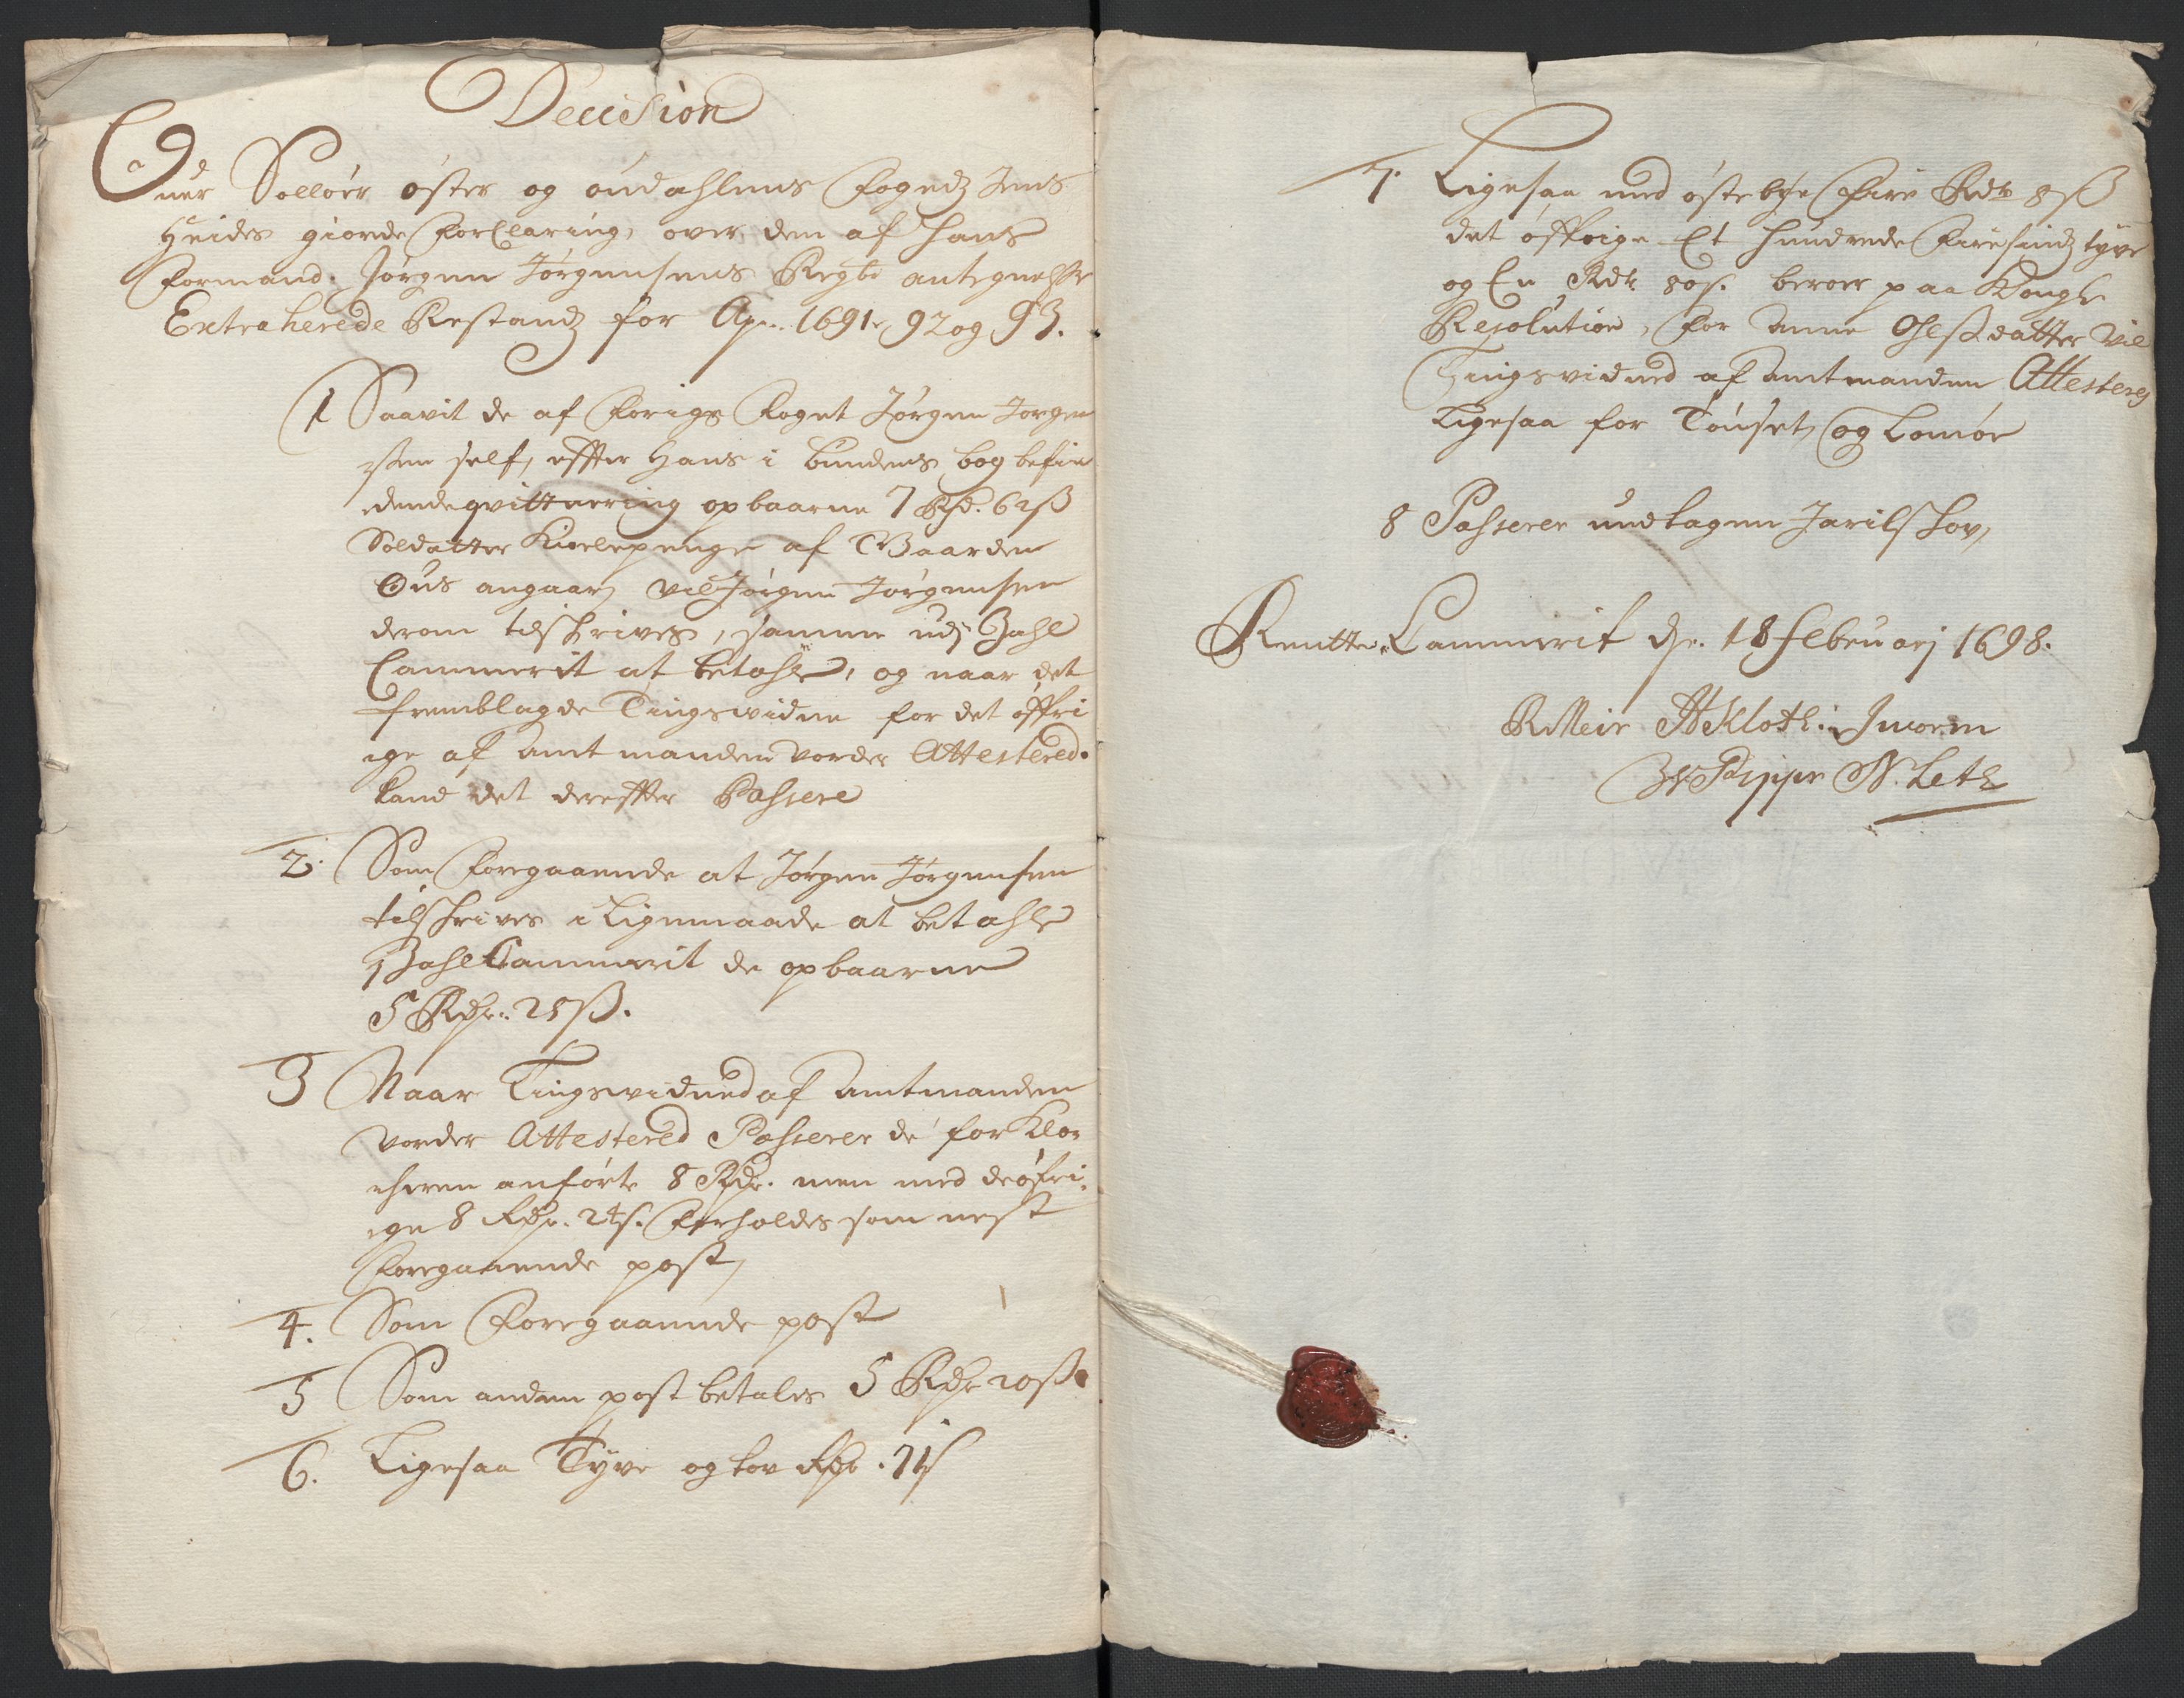 Decision
Over Solløer øster og oudahlens Fogedz Jens
Heides giorde Forclaring, over den af hans
Formand. Jørgen Jørgensens Regbr antegnelsse
Extraherede Restandz for Ap. 1691, 92 og 93.
1 Saavit de af Forige Foget Jørgen Jorgen
sen self, effter hans i bundens bog befin
dende qvittuering opbaarne 7 Rd. 62 ß
Soldatter Kiolepenge af Gaarden
Ous angaar, vil Jørgen Jørgensen
derom tilschrives, samme udj Zahl
Cammerit at betahle, og naar det
fremblagde Tingsvidne for det øffri
ge af Amtmanden vorder Attestered.
kand det dereffter Passere
2. Som Foregaaende at Jørgen Jørgensen
tilschrives i Ligemaade at betahle
Zahl Cammerit de opbaarne
5 Rdr. 25 ß.
3 Naar Tingsvidned af Amtmanden
vorder Attestered Passerer de for Klo-
cheren anførte 8 Rdr. men med de øfri-
ge 8 Rdr. 24 s. Forholdes som nest
Foregaaende post,
4. Som Foregaaende post
5 Som anden post betales 5 Rdr 20 ß
6. Ligesaa Tyve og tov Rdr. 71 s
7. Ligesaa med østebye Fire Rdr 8 ß
det øffrige Et hundrede Firesindz tyve
og En Rdr. 80 s. beroer paa Kongl.
Resolution, for Anne Ohlsdatter vil
Tingsvidned af Amtmanden Attesteres
Ligesaa for Tønset, og Lomøe
8 Passerer undtagen Jarilschov,
Rentte Cammerit dr. 18 Februarj 1698.
R Meir H Kloth. J Worm
P Pipper N. Leth